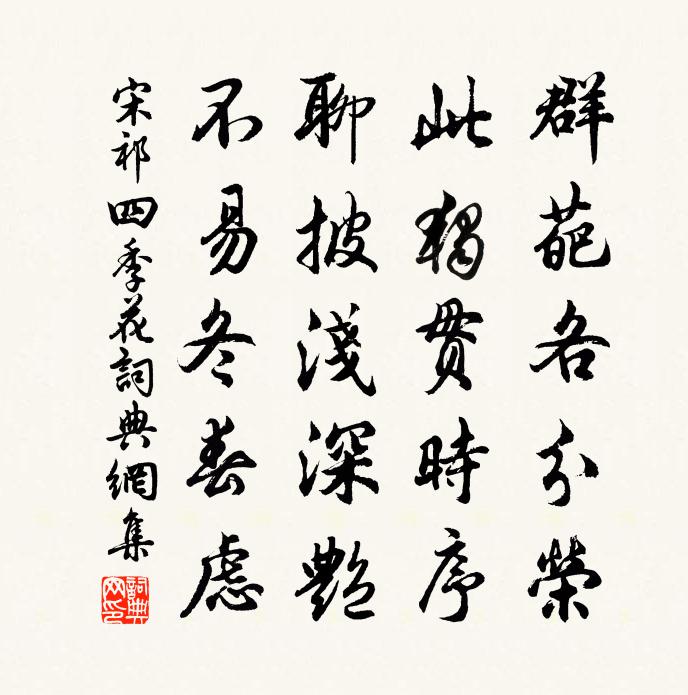 群葩各分榮
此獨貫時序
聊披淺深艷
不易冬春慮
宋祁四季花詞典網集
詞典網印